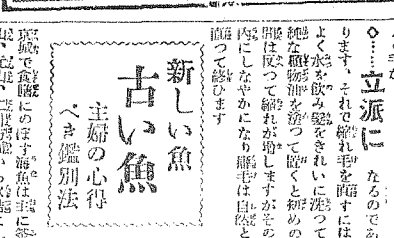 ◇……立派に なるのであ
ります、それで縮れ毛を直すには
よく水を飲み髪をきれいに洗つて
純な植物油を塗つて置くと初めの
間は反つて縮れが増しますがその
内にしなやかになり縮毛は自然と
直つて終ひます
新しい魚
古い魚
主婦の心得
べき鑑別法
京城で食膳にのぼす海魚は主に釜